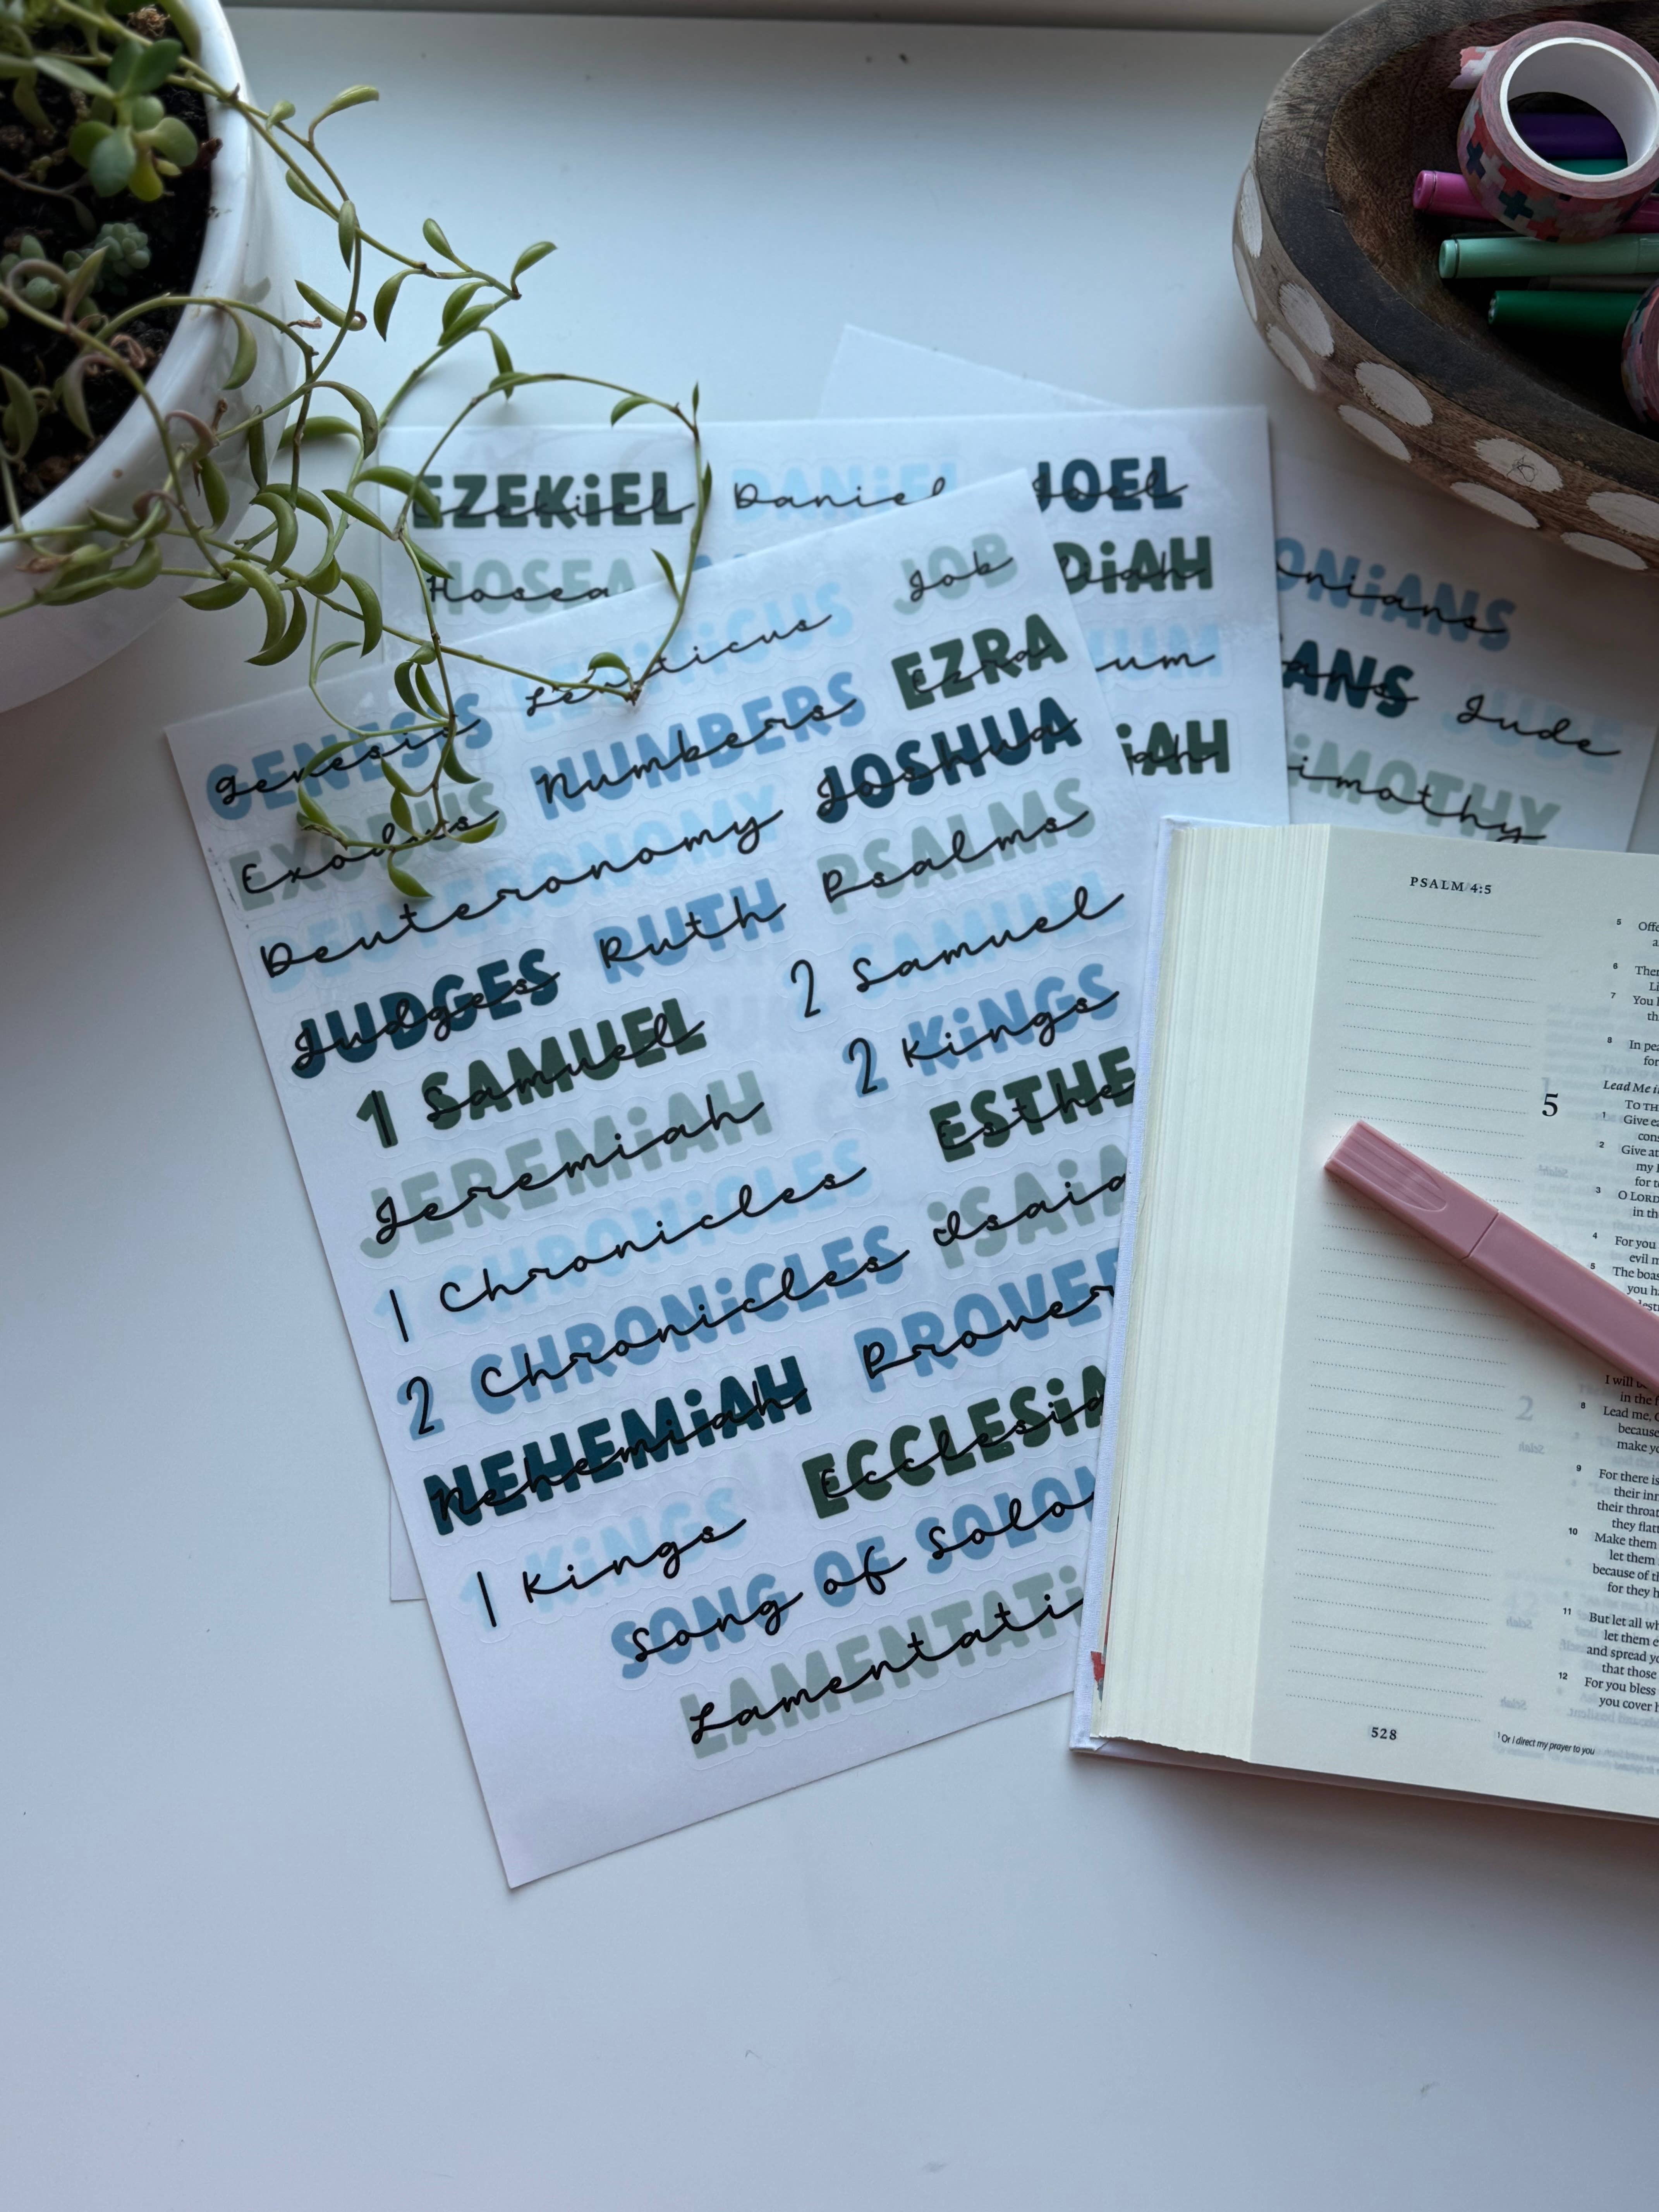 EZEKiEL Ezekiel DANiEL Daniel JOEL Joel
HOSEA Hosea DiAH diah
UM um
iAH iah
ONiANS onians
ANS ans JUDE Jude
iMOTHY imothy
GENESIS Genesis LEViTiCUS Leviticus JOB Job
EXODUS Exodus NUMBERS Numbers EZRA Ezra
DEUTERONOMY Deuteronomy JOSHUA Joshua
JUDGES Judges RUTH Ruth PSALMS Psalms
1 SAMUEL Samuel 2 SAMUEL Samuel
JEREMiAH Jeremiah 2 KiNGS Kings
1 CHRONiCLES Chronicles ESTHE Esthe
2 CHRONiCLES Chronicles iSAiA Isaia
NEHEMiAH Nehemiah PROVER Prover
1 KiNGS Kings ECCLESiA Ecclesia
SONG OF SOLOM Song of Solo
LAMENTATi Lamentati
PSALM 4:5
5 Offe
a
6 Ther
Li
7 You
th
8 In pea
for
Lead Me i
5
TO TH
1 Give ea
cons
2 Give at
my
for to
3 O LORD
in the
4 For you
evil m
5 The boas
you ha
dest
I will
in the
8 Lead me, O
because
make yo
9 For there is
their inn
their throat
they flatt
10 Make them
let them
because of th
for they h
11 But let all wh
let them e
and spread yo
that those
12 For you bless
you cover h
528
1 Or I direct my prayer to you